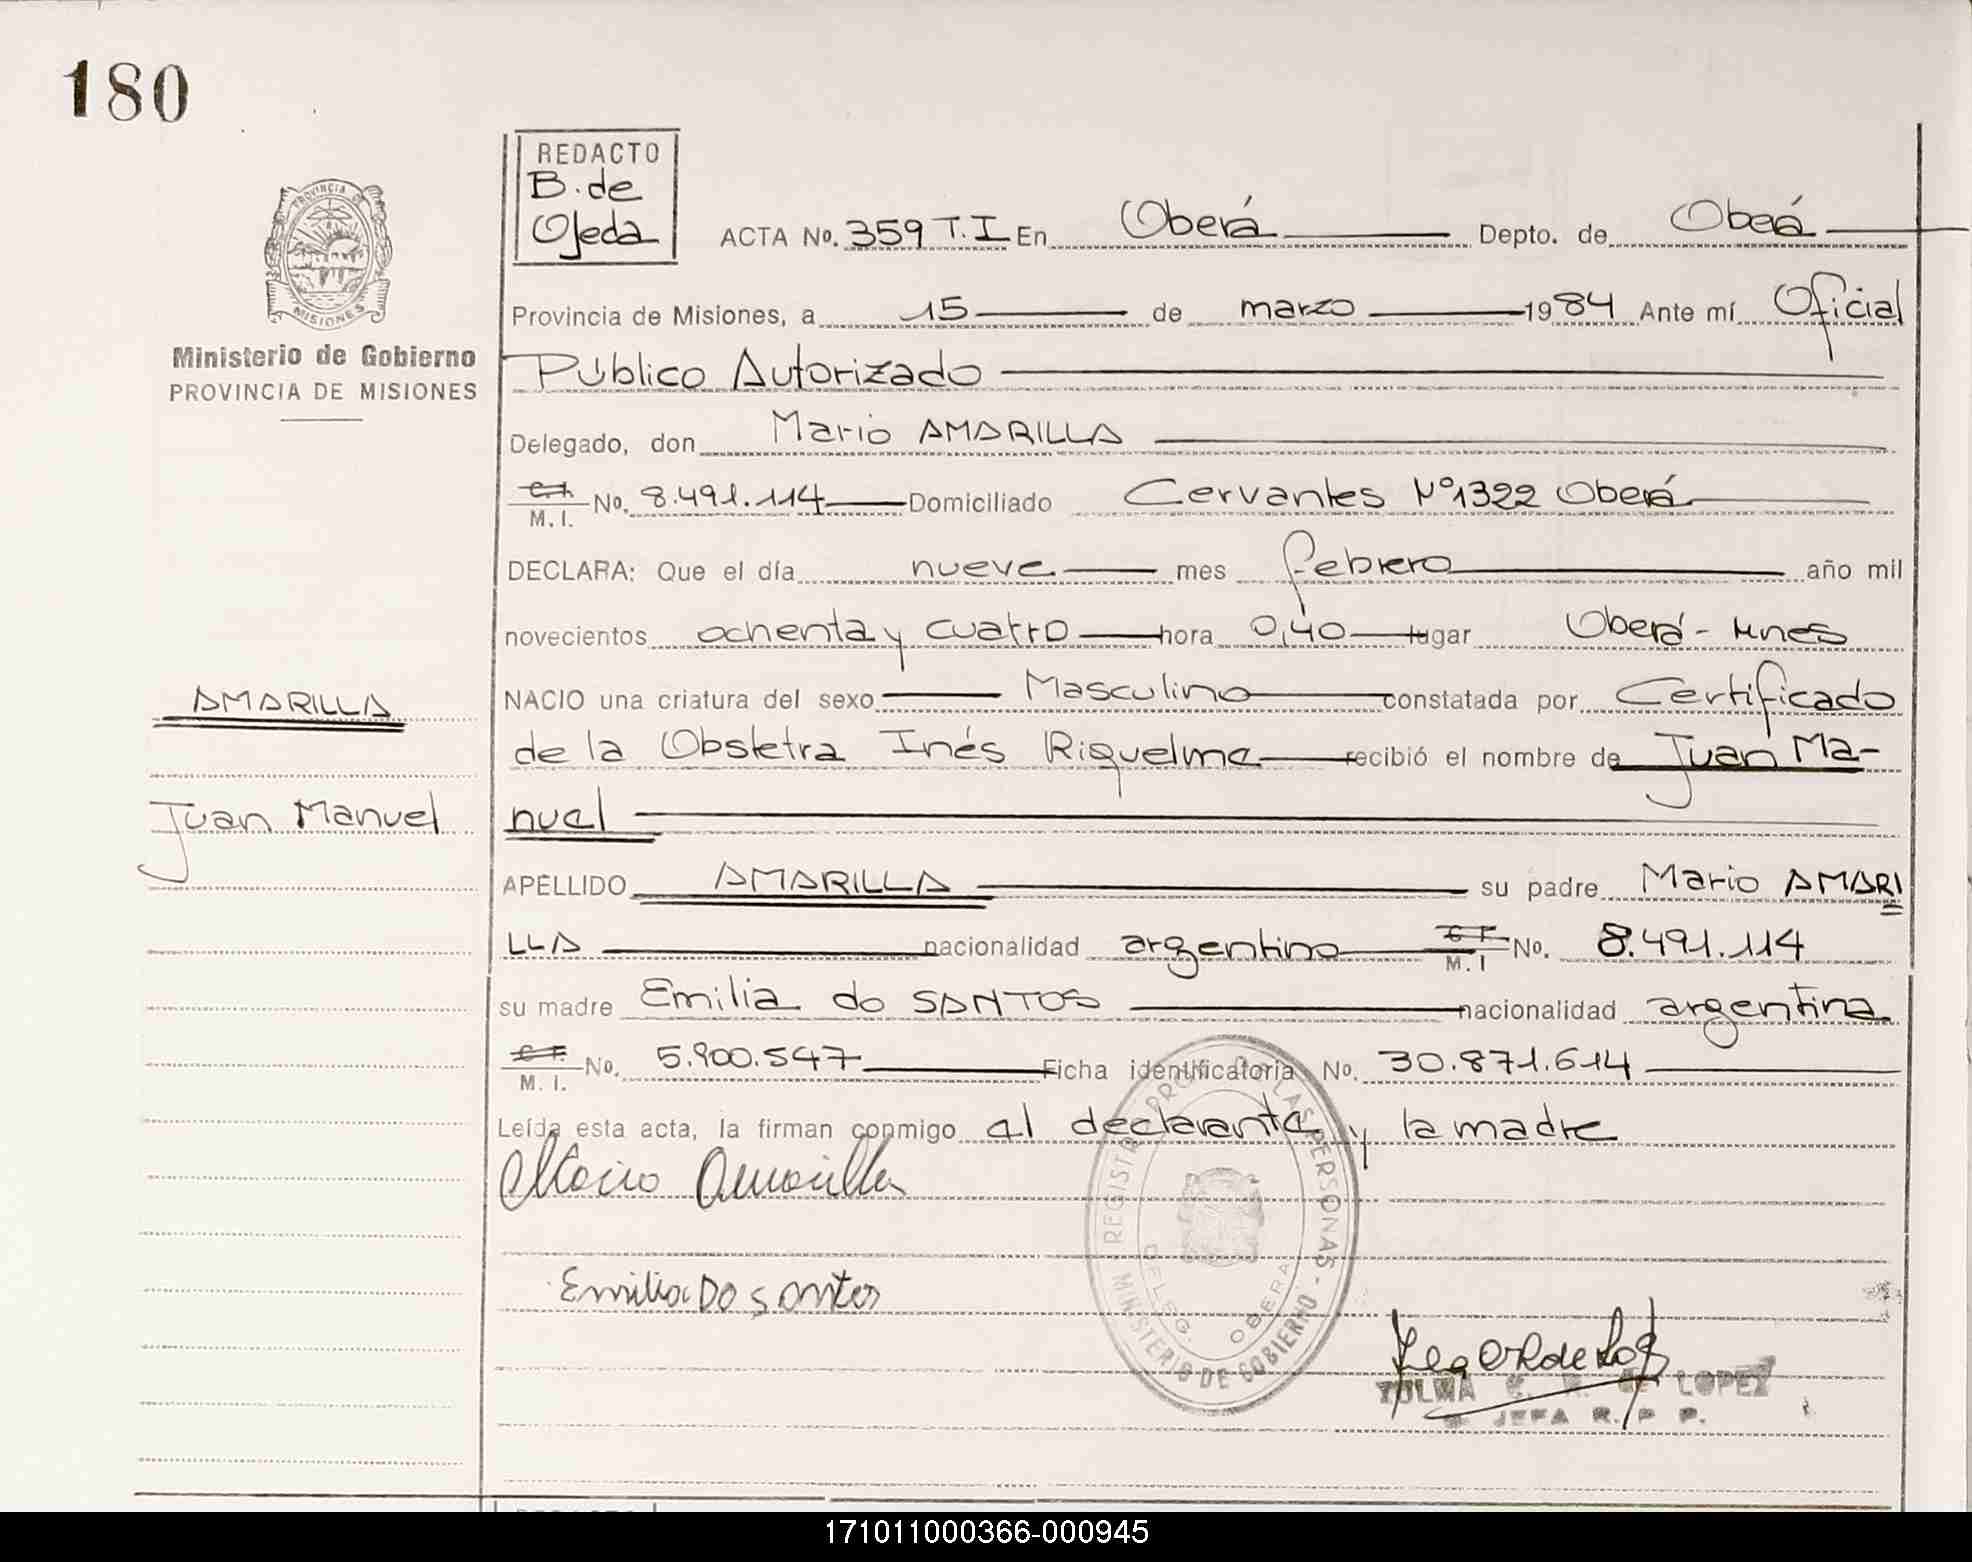 180
REDACTO
B. de
Ojeda
PROVINCIA DE
MISIONES
Ministerio de Gobierno
PROVINCIA DE MISIONES
ACTA No. 359 T.I En Oberá Depto. de Oberá
Provincia de Misiones, a 15 de marzo 1984 Ante mí Oficial
Público Autorizado
Delegado, don Mario AMARILLA
C.I. M.I. No. 8.491.114 Domiciliado Cervantes Nº1322 Oberá
DECLARA: Que el día nueve mes febrero año mil
novecientos ochenta y cuatro hora 0,40 lugar Oberá - Mnes
NACIO una criatura del sexo Masculino constatada por Certificado
de la Obstetra Inés Riquelme recibió el nombre de Juan Ma-
nuel
AMARILLA
Juan Manuel
APELLIDO AMARILLA su padre Mario AMARI
LLA nacionalidad argentino M.I No. 8.491.114
su madre Emilia do SANTOS nacionalidad argentina
M.I. No. 5.900.547 Ficha identificatoria No. 30.871.614
Leída esta acta, la firman conmigo al declarante y la madre
Mario Amarilla
Emilia Do santos
REGISTRO PROV. DE LAS PERSONAS - MINISTERIO DE GOBIERNO
DELEG. OBERA
LOPEZ
JEFA R. P. P.
171011000366-000945